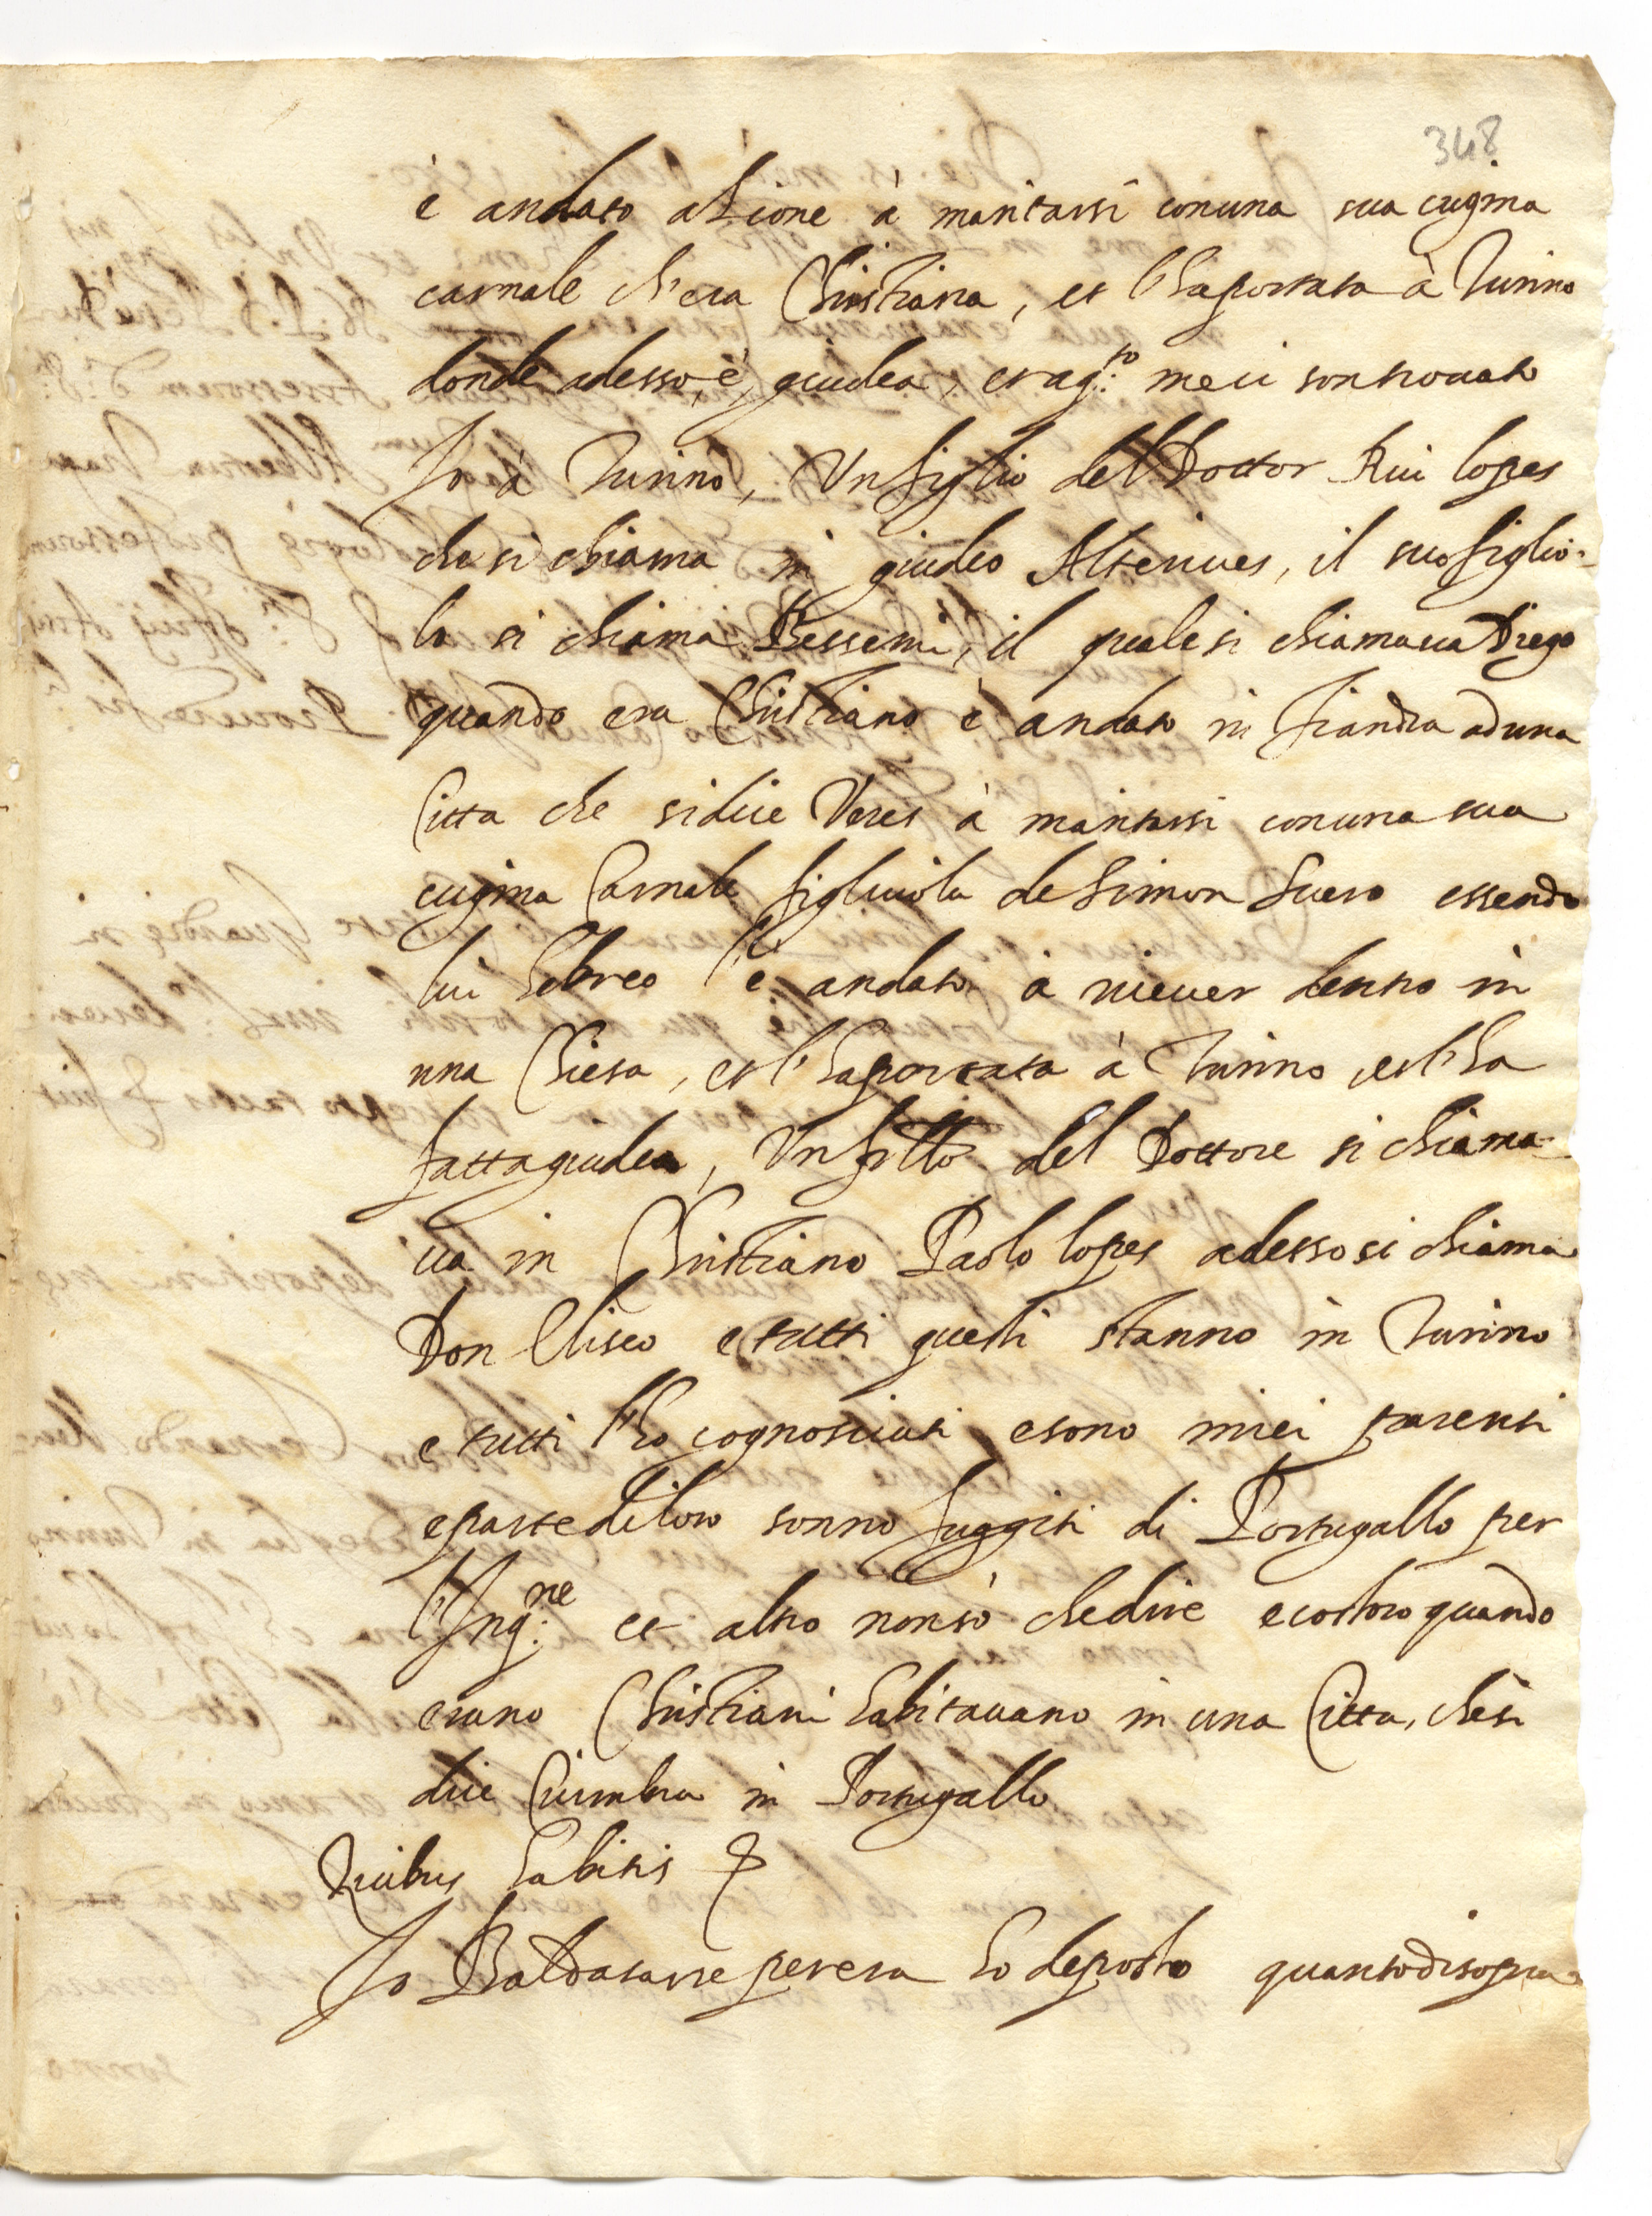 348
è andato a Lione à maritarsi con una sua cugina
carnale ch'era Christiana, et l'ha portata à Turino
donde adesso è giudea, et a q.to me ci son trouato
Io à Turino, Un figlio del Dottor Rui lopes
che si chiama in giudeo Alteriues, il suo figlio-
lo si chiama Bessemi, il quale si chiamaua Diego
quando era Christiano è andato in fiandra ad una
Citta che si dice Veres à maritarsi con una sua
cugina Carnale figliuola de Simon Suero essendo
lui hebreo è andato à riceuer dentro in
una Chiesa, et l'ha portata à Turino, et l'ha
fatta giudea, Un fr̃llo del Dottore si chiama-
ua in Christiano Paolo lopes adesso si chiama
Don Eliseo e tutti questi stanno in Turino
e tutti l'ho cognosciuti e sono miei parenti
e parte di loro sonno fuggiti di Portugallo per
l'Inq.ne et altro non sò che dire e costoro quando
erano Christiani habitauano in una Citta, che si
dice Cuimbra in Portugallo
Quibus habitis &
Io Baldasarre perera ho deposto quanto di sopra